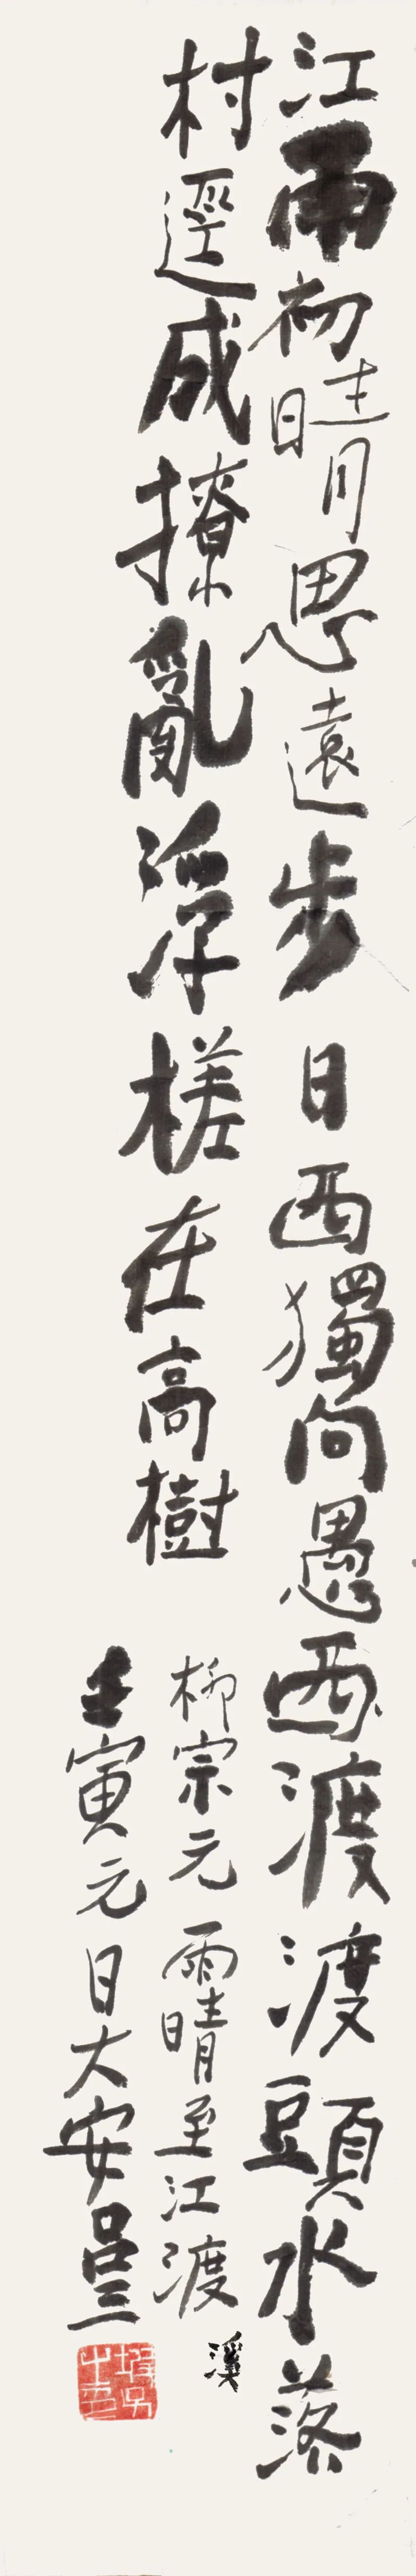 江雨初晴思遠步日西獨向愚西渡渡頭水落
村逕成撩亂浮槎在高樹
柳宗元雨晴至江渡
溪
壬寅元日大安呂三